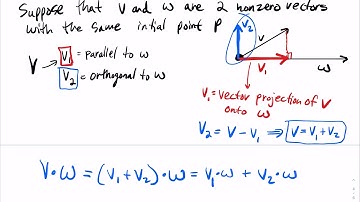 Suppose that V and w are 2 nonzero vectors
with the same initial point P
V
V₁ = parallel to w
V₂ = orthogonal to w
V₂
V
V₁
w
V₁ = vector projection of V
onto w
V₂ = V - V₁ ⇒ V = V₁ + V₂
V • w = (V₁ + V₂) • w = V₁ • w + V₂ • w